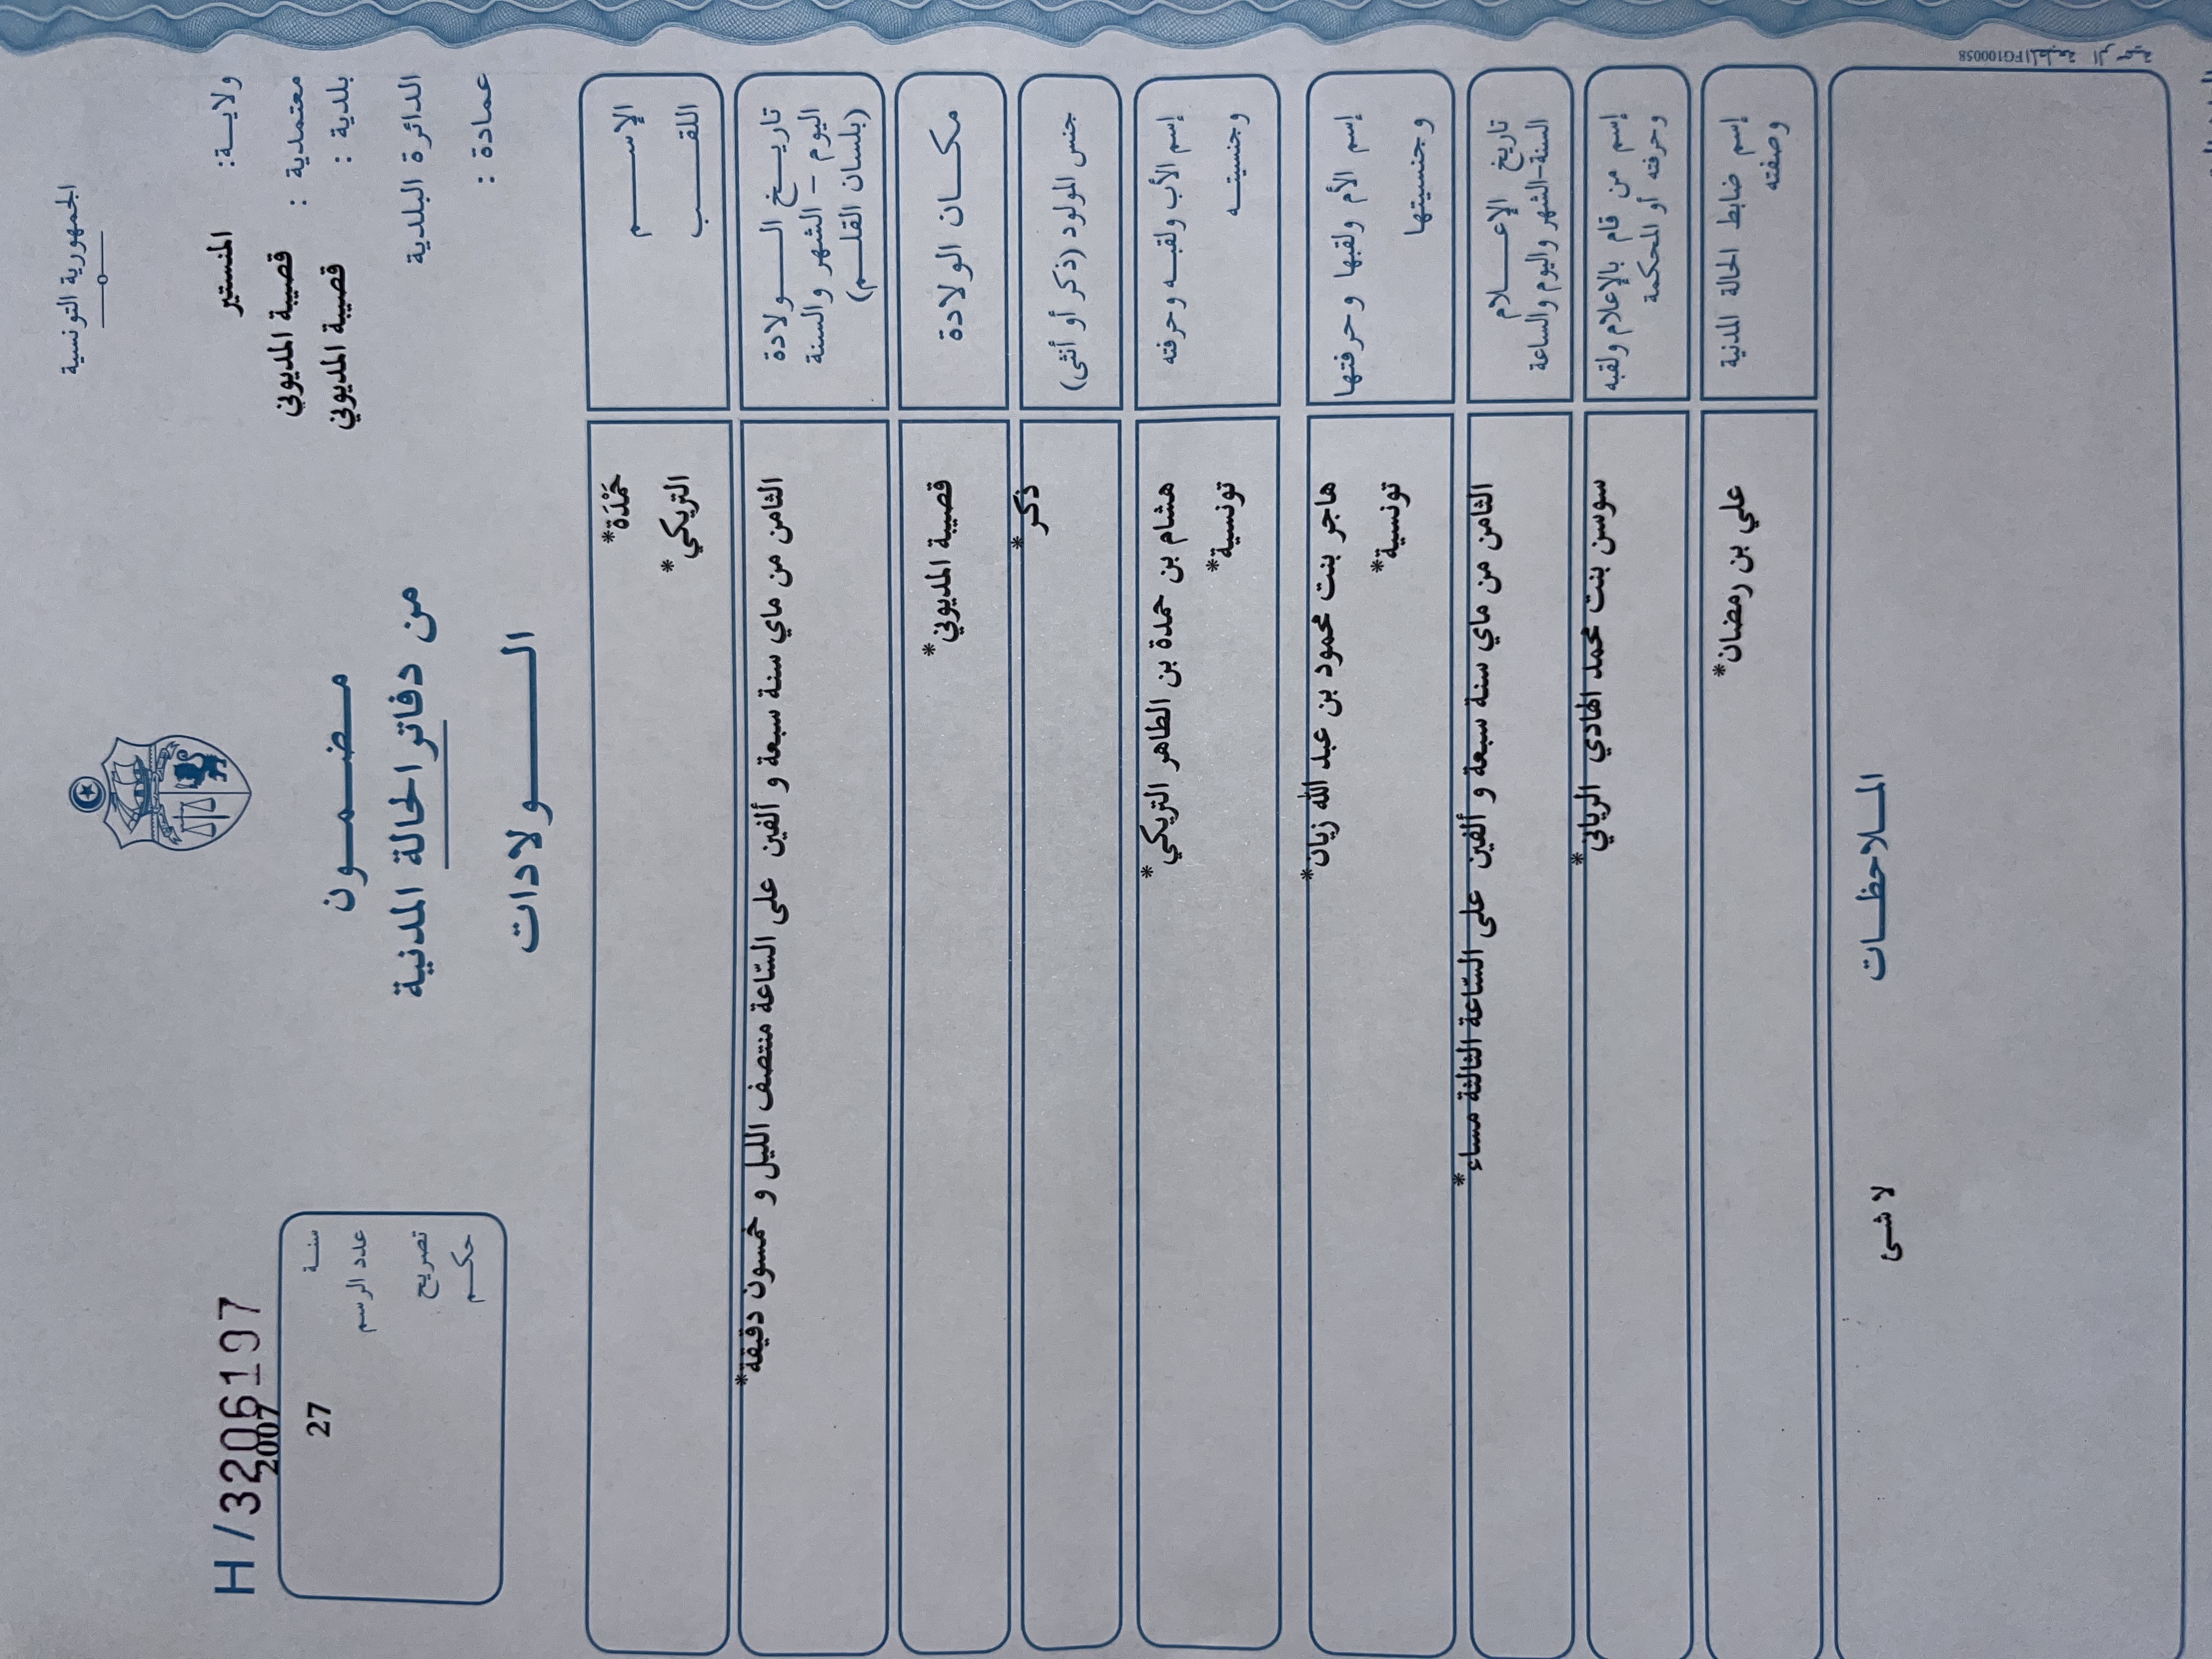 الجمهورية التونسية
ولايـــة: المنستير
معتمدية : قصيبة المديوني
بلدية : قصيبة المديوني
الدائرة البلدية
عمادة :
مـضـمـــون
من دفاتر الحالة المدنية
الـــــولادات
H/3206197
سنـــة 2007
عدد الرسم 27
تصريح
حكـــم
الإســـــم حَمْدَة*
اللقـــــب التريكي*
تاريـــخ الـــــولادة
اليوم - الشهر والسنة
(بلسان القلـــم)
الثامن من ماي سنة سبعة و ألفين على السّاعة منتصف الليل و خمسون دقيقة*
مكـــان الولادة قصيبة المديوني*
جنس المولود (ذكر أو أنثى) ذكر*
إسم الأب ولقبـــه وحرفته هشام بن حمدة بن الطاهر التريكي*
وجنسيتـــه تونسية*
إسم الأم ولقبها وحرفتها هاجر بنت محمود بن عبد الله زيان*
وجنسيتها تونسية*
تاريخ الإعـــــلام
السنة-الشهر واليوم والساعة
الثامن من ماي سنة سبعة و ألفين على السّاعة الثالثة مساء*
إسم من قام بالإعلام ولقبه
وحرفته أو المحكمة
سوسن بنت محمد الهادي الرياني*
إسم ضابط الحالة المدنية
وصفته
علي بن رمضان*
المـــلاحظـــات
لا شئ
FG100058المطبعة الرسمية